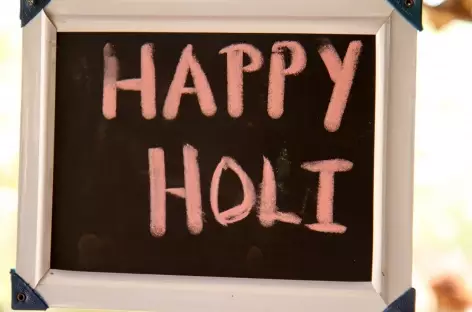 HAPPY
HOLI